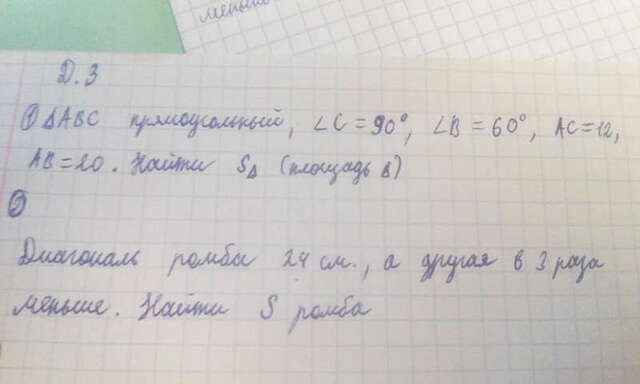 меньше
Д.З
① ΔABC прямоугольный, ∠C = 90°, ∠B = 60°, AC = 12,
AB = 20. Найти SΔ (площадь Δ)
②
Диагональ ромба 24 см., а другая в 3 раза
меньше. Найти S ромба